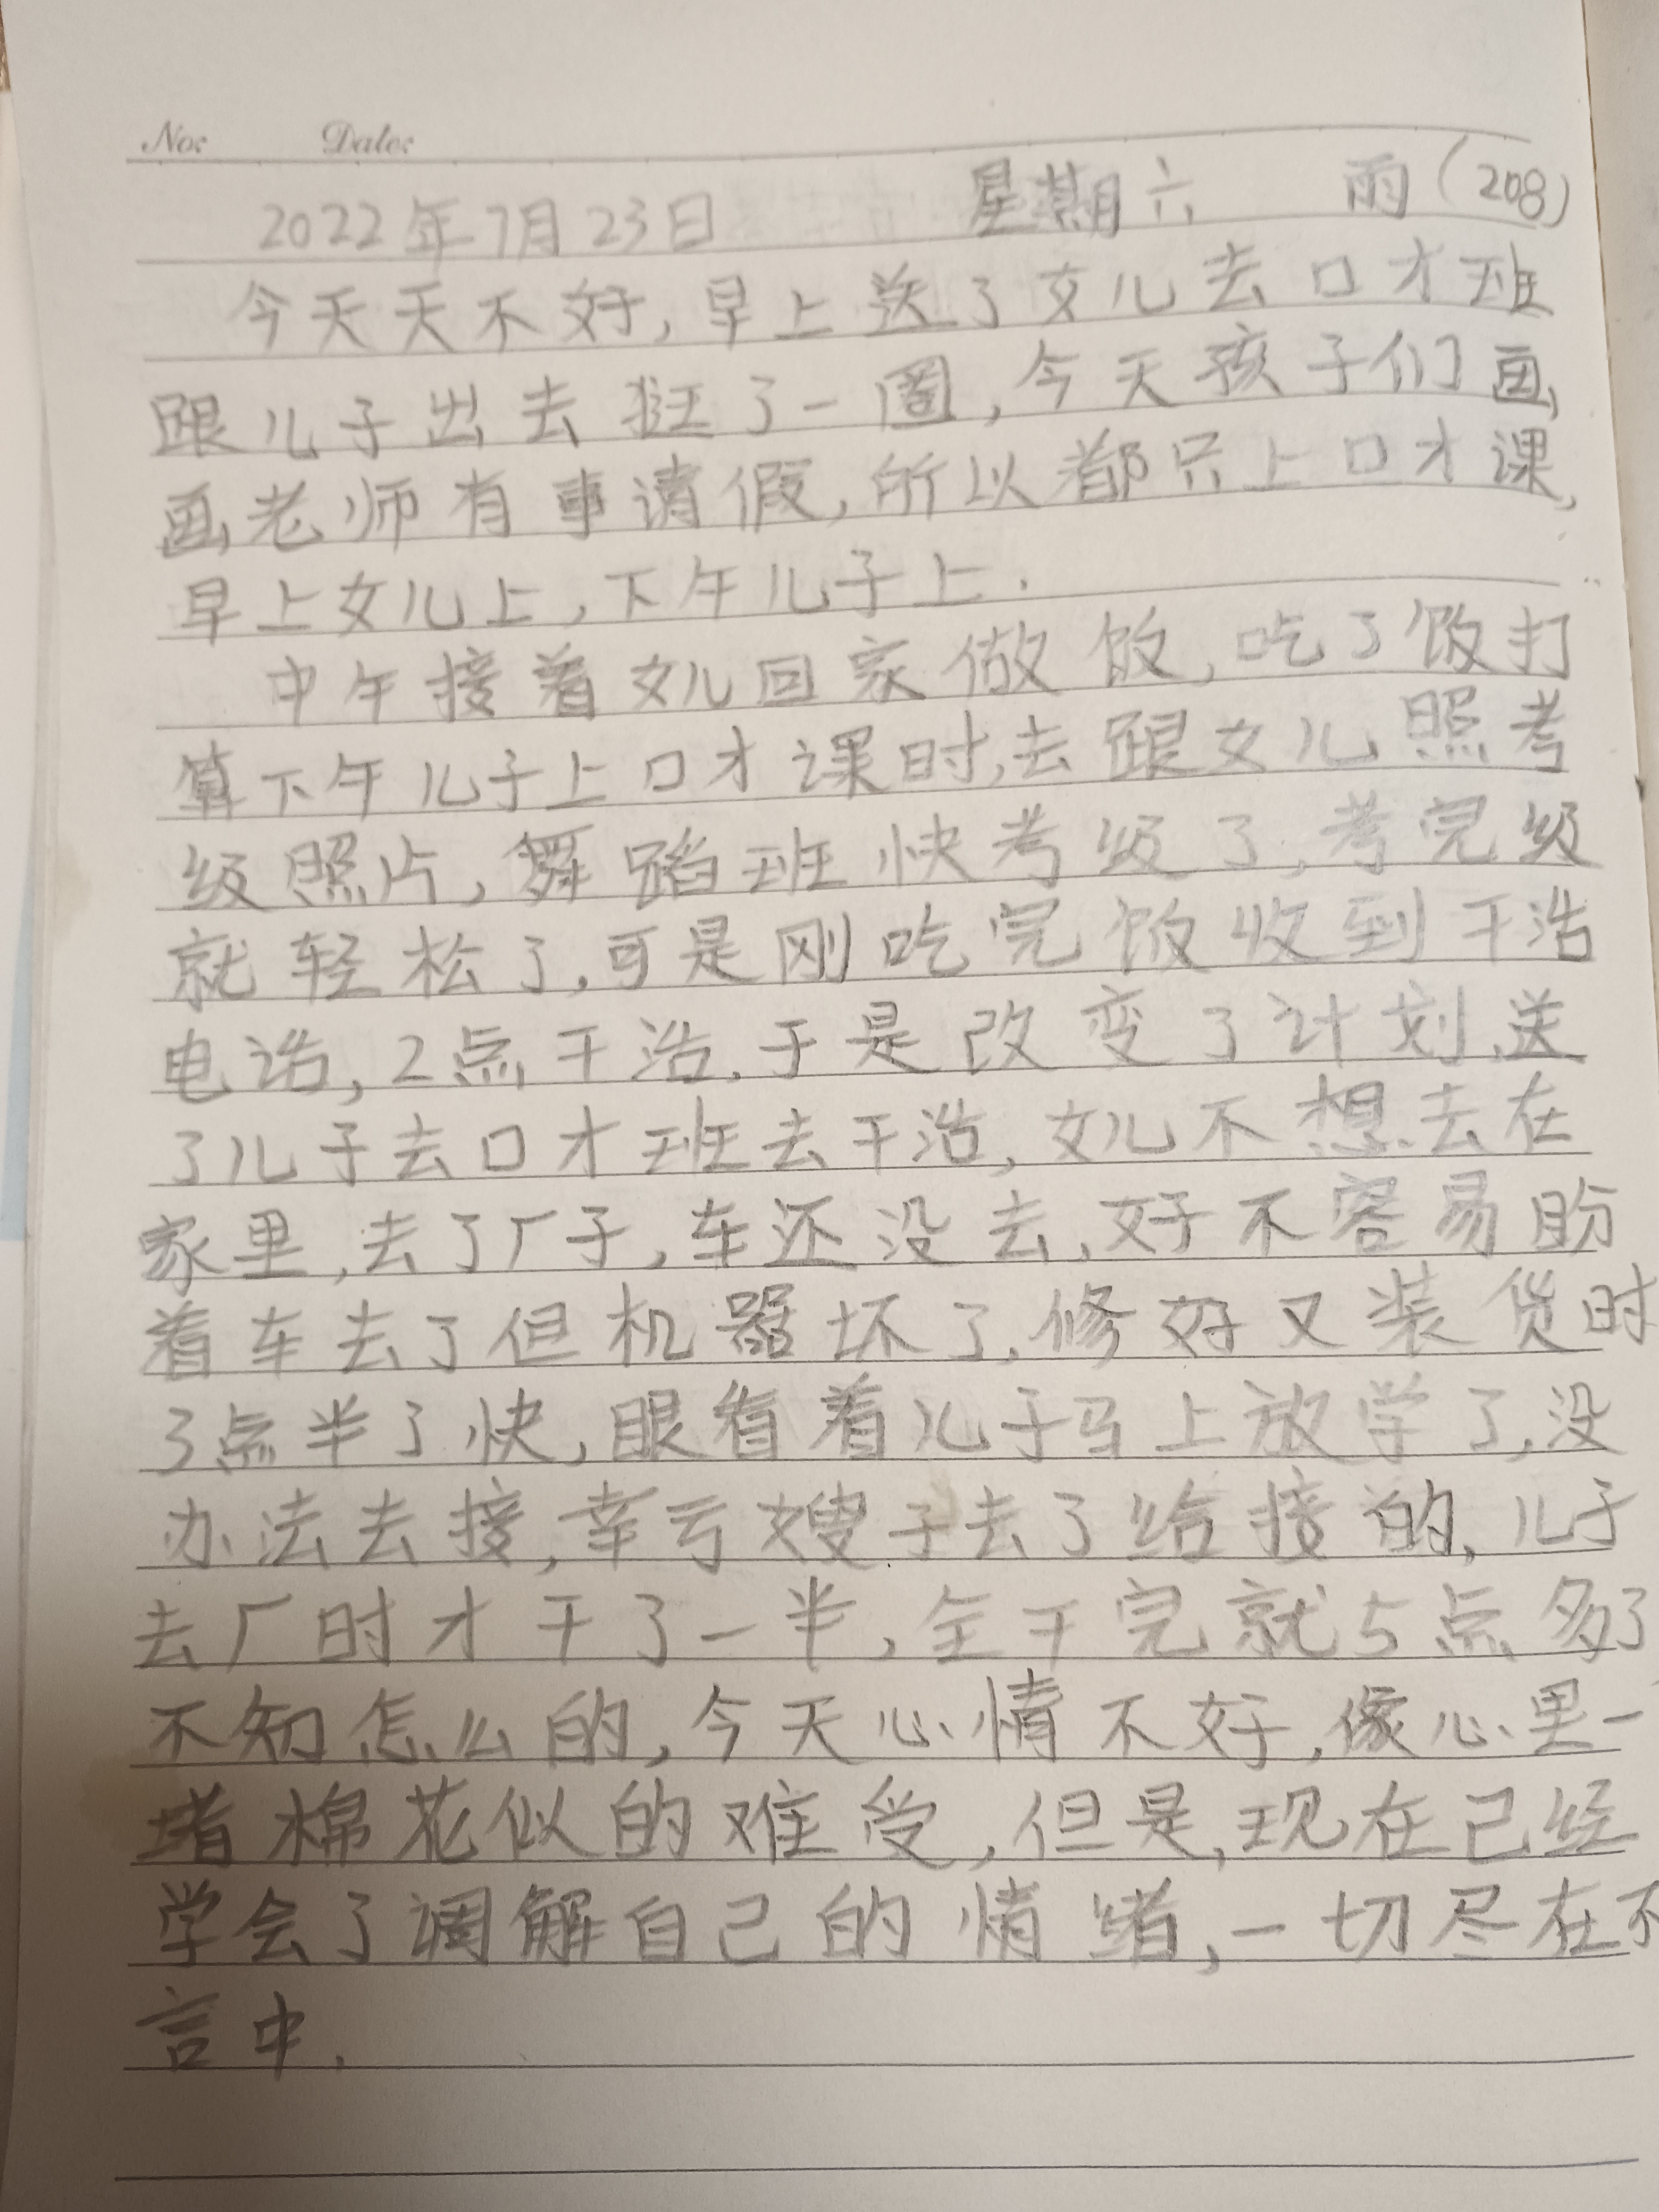 No: Date:
2022年7月23日 星期六 雨(208)
今天天不好,早上送了女儿去口才班
跟儿子出去狂了一圈,今天孩子们画
画老师有事请假,所以都只上口才课,
早上女儿上,下午儿子上.
中午接着女儿回家做饭,吃了饭打
算下午儿子上口才课时,去跟女儿照考
级照片,舞蹈班快考级了,考完级
就轻松了,可是刚吃完饭收到干活
电话,2点干活.于是改变了计划,送
了儿子去口才班去干活,女儿不想去在
家里,去了厂子,车还没去,好不容易盼
着车去了但机器坏了,修好又装货时
3点半了快,眼看着儿子马上放学了,没
办法去接,幸亏嫂子去了给接的,儿子
去厂时才干了一半,全干完就5点多了
不知怎么的,今天心情不好,像心里一
堵棉花似的难受,但是,现在己经
学会了调解自己的情绪,一切尽在不
言中.